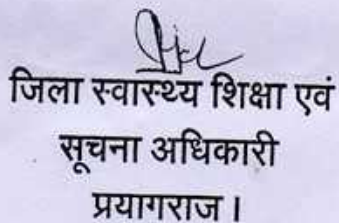 जिला स्वास्थ्य शिक्षा एवं
सूचना अधिकारी
प्रयागराज।